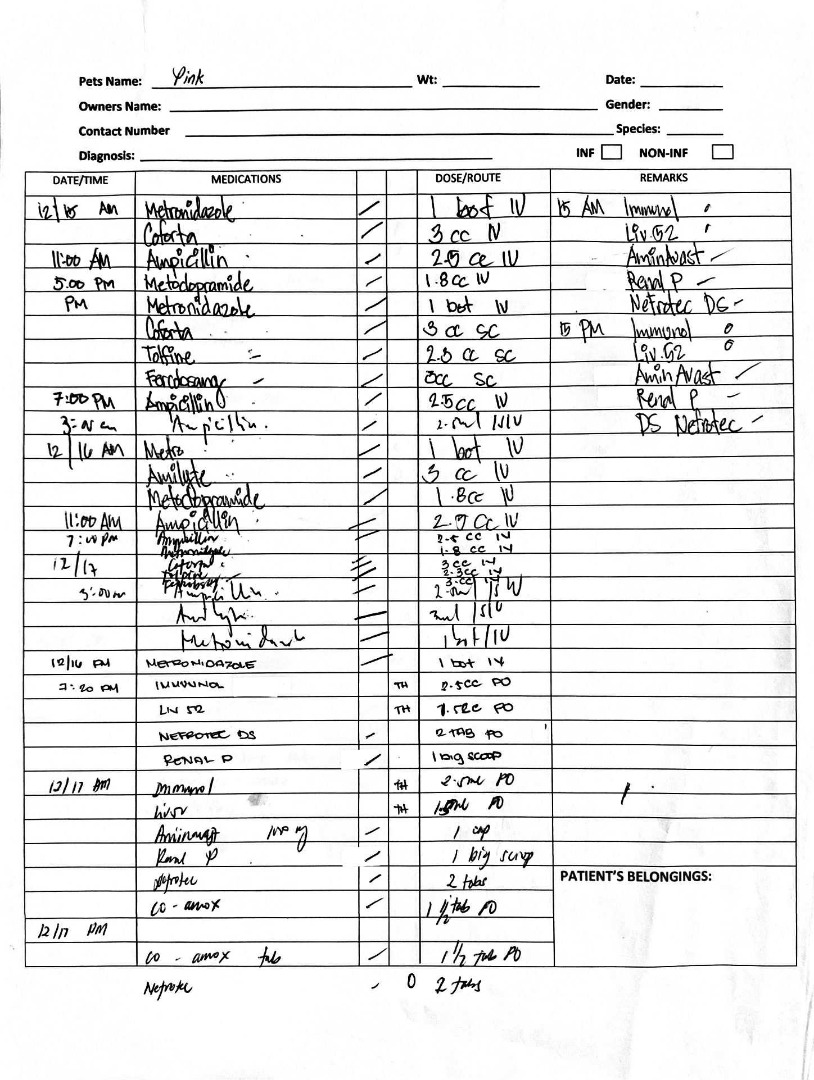 Pets Name: Pink Wt: Date:
Owners Name: Gender:
Contact Number Species:
Diagnosis: INF NON-INF
DATE/TIME MEDICATIONS DOSE/ROUTE REMARKS
12/15 AM Metronidazole 1 bot IV 15 AM Immunol
Coforta 3 cc IV Liv.52
11:00 AM Ampicillin 2.5 cc IV AminAvast
5:00 PM Metoclopramide 1.8cc IV Renal P
PM Metronidazole 1 bot IV Nefrotec DS
Coforta 3 cc SC 15 PM Immunol
Tolfine 2.3 cc SC Liv.52
Fercobsang 3cc SC AminAvast
7:00 PM Ampicillin 2.5cc IV Renal P
Ampicillin DS Nefrotec
12/16 AM Metro 1 bot IV
Amilyte 3 cc IV
Metoclopramide 1.8cc IV
11:00 AM Ampicillin 2.5 cc IV
7:00 PM Ampicillin 2.5 cc IV
Metronidazole 1.8 cc IV
12/17 Coforta 3cc IV
Tolfine 2.3cc IV
3cc IV
3:00 am Ampicillin
1 bot/IV
12/16 PM METRONIDAZOLE 1 bot IV
7:20 PM IMMUNOL TH 2.5cc PO
LIV 52 TH PO
NEFROTEC DS 2 TAB PO
RENAL P 1 big scoop
12/17 AM Immunol TH 2.5ml PO
TH PO
Aminavast 1 cap
Renal P 1 big scoop
Nefrotec 2 tabs
co - amox 1 1/2 tab PO
12/17 PM PATIENT'S BELONGINGS:
co - amox tab 1 1/2 tab PO
Nefrotec 0 2 tabs